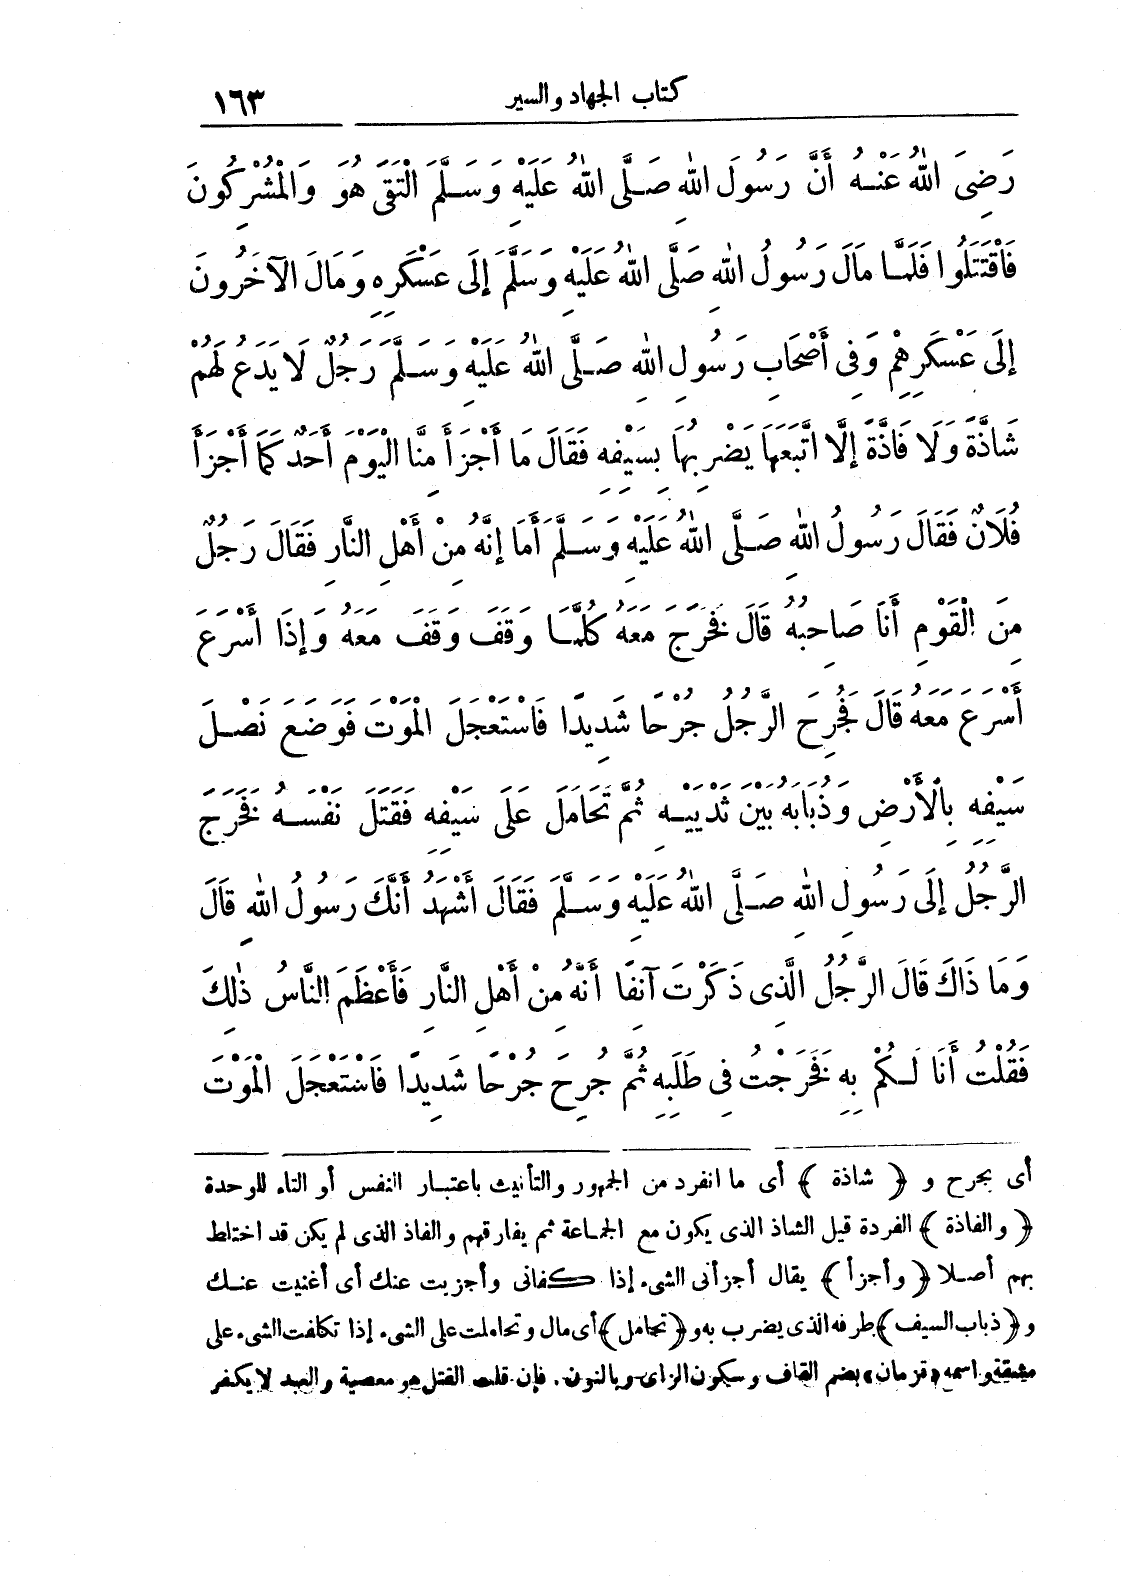 كتاب الجهاد والسير ١٦٣
رَضِىَ اللهُ عَنْهُ أَنَّ رَسُولَ اللهِ صَلَّى اللهُ عَلَيْهِ وَسَلَّمَ الْتَقَى هُوَ وَالْمُشْرِكُونَ
فَاقْتَتَلُوا فَلَمَّا مَالَ رَسُولُ اللهِ صَلَّى اللهُ عَلَيْهِ وَسَلَّمَ إِلَى عَسْكَرِهِ وَمَالَ الآخَرُونَ
إِلَى عَسْكَرِهِمْ وَفِى أَصْحَابِ رَسُولِ اللهِ صَلَّى اللهُ عَلَيْهِ وَسَلَّمَ رَجُلٌ لَا يَدَعُ لَهُمْ
شَاذَّةً وَلَا فَاذَّةً إِلَّا اتَّبَعَهَا يَضْرِبُهَا بِسَيْفِهِ فَقَالَ مَا أَجْزَأَ مِنَّا الْيَوْمَ أَحَدٌ كَمَا أَجْزَأَ
فُلَانٌ فَقَالَ رَسُولُ اللهِ صَلَّى اللهُ عَلَيْهِ وَسَلَّمَ أَمَا إِنَّهُ مِنْ أَهْلِ النَّارِ فَقَالَ رَجُلٌ
مِنَ الْقَوْمِ أَنَا صَاحِبُهُ قَالَ فَخَرَجَ مَعَهُ كُلَّمَا وَقَفَ وَقَفَ مَعَهُ وَإِذَا أَسْرَعَ
أَسْرَعَ مَعَهُ قَالَ فَجُرِحَ الرَّجُلُ جُرْحًا شَدِيدًا فَاسْتَعْجَلَ الْمَوْتَ فَوَضَعَ نَصْلَ
سَيْفِهِ بِالْأَرْضِ وَذُبَابَهُ بَيْنَ ثَدْيَيْهِ ثُمَّ تَحَامَلَ عَلَى سَيْفِهِ فَقَتَلَ نَفْسَهُ فَخَرَجَ
الرَّجُلُ إِلَى رَسُولِ اللهِ صَلَّى اللهُ عَلَيْهِ وَسَلَّمَ فَقَالَ أَشْهَدُ أَنَّكَ رَسُولُ اللهِ قَالَ
وَمَا ذَاكَ قَالَ الرَّجُلُ الَّذِى ذَكَرْتَ آنِفًا أَنَّهُ مِنْ أَهْلِ النَّارِ فَأَعْظَمَ النَّاسُ ذٰلِكَ
فَقُلْتُ أَنَا لَكُمْ بِهِ فَخَرَجْتُ فِى طَلَبِهِ ثُمَّ جُرِحَ جُرْحًا شَدِيدًا فَاسْتَعْجَلَ الْمَوْتَ
أى بجرح و ﴿ شاذة ﴾ أى ما انفرد من الجمهور والتأنيث باعتبار النفس أو التاء للوحدة
﴿ والفاذة ﴾ الفردة قيل الشاذ الذى يكون مع الجماعة ثم يفارقهم والفاذ الذى لم يكن قد اختلط
بهم أصلا ﴿ وأجزأ ﴾ يقال أجزأنى الشىء إذا كفانى وأجزيت عنك أى أغنيت عنك
و﴿ ذباب السيف ﴾ طرفه الذى يضرب به و﴿ تحامل ﴾ أى مال وتحاملت على الشىء إذا تكلفت الشىء على
مشقة واسمه «قزمان» بضم القاف وسكون الزاى وبالنون. فإن قلت القتل هو معصية والعبد لا يكفر